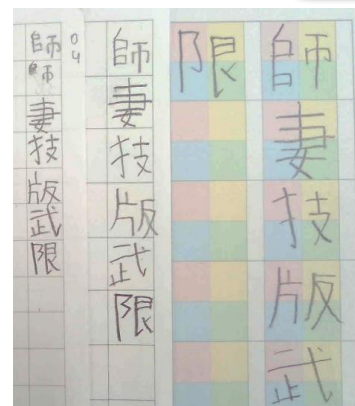 師妻技版武
限
師妻技版武限
04
師師妻技版武限